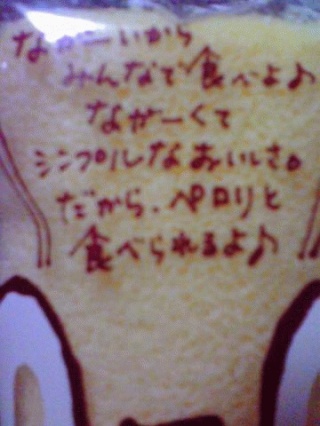 ながーいから
みんなで食べよ♪
ながーくて
シンプルなおいしさ。
だから、ペロリと
食べられるよ♪